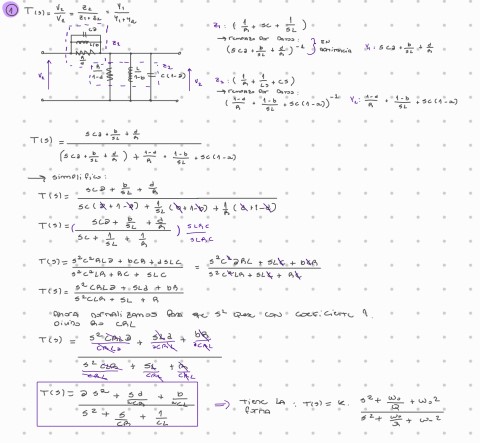 1 T(s) = V2/V2 = Z2/(Z1+Z2) = Y1/(Y1+Y2)
Z1: (1/R + sC + 1/sL)
Ca
Z1
L/b
R/d
→ numeros por caros:
(sCa + b/sL + d/R)^-1 } EN
Y1 = sCa + b/sL + d/R
Z2
V1
R/1-d
L/1-b
C(1-a)
V2
Z2: (1/R + 1/Ls + Cs)
(1-d/R + 1-b/sL + sC(1-a))^-1
Y2: 1-d/R + 1-b/sL + sC(1-a)
T(s) = (sCa + b/sL + d/R) / ((sCa + b/sL + d/R) + 1-d/R + 1-b/sL + sC(1-a))
→ simplifico:
T(s) = (sCa + b/sL + d/R) / (sC(a+1-a) + 1/sL (b+1-b) + 1/R (d+1-d))
T(s) = ((sCa + b/sL + d/R) / (sC + 1/sL + 1/R)) sLRC/sLRC
T(s) = (s²C²RLa + bCR + dsLC) / (s²C²LR + RC + sLC) = (s²C²aRL + sLCd + bCR) / (s²C²LR + sLC + RC)
T(s) = (s²CRLa + sLd + bR) / (s²CLR + sL + R)
Ahora normalizamos para que s² quede con coeficiente 1
Divido por CRL
T(s) = (s²CRLa/CRL + sLd/CRL + bR/CRL) / (s²CLR/CRL + sL/CRL + R/CRL)
T(s) = (a s² + sd/CR + b/CL) / (s² + s/CR + 1/CL)
⇒ Tiene la forma : T(s) = K · (s² + ω0/Q + ω0²) / (s² + ω0/Q + ω0²)